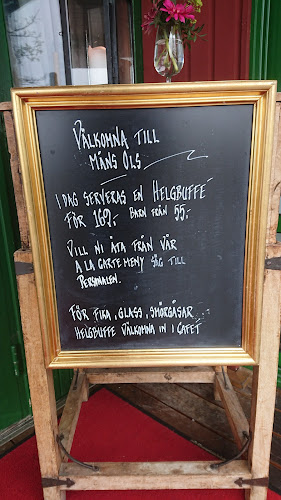 VÄLKOMNA TILL
MÅNS OLS
I DAG SERVERAS EN HELGBUFFÉ
FÖR 169:- BARN FRÅN 55:-
VILL NI ÄTA FRÅN VÅR
A LA CARTE MENY SÄG TILL
PERSONALEN.
FÖR FIKA, GLASS, SMÖRGÅSAR
HELGBUFFE VÄLKOMNA IN I CAFÉT